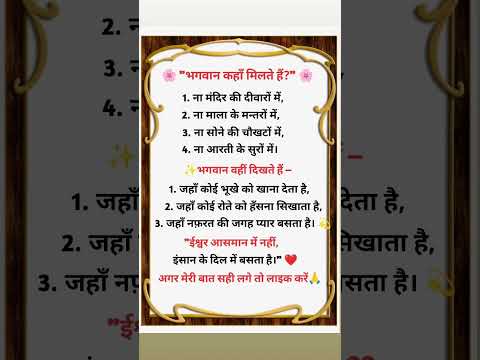 🌸 "भगवान कहाँ मिलते हैं?" 🌸
1. ना मंदिर की दीवारों में,
2. ना माला के मन्तरों में,
3. ना सोने की चौखटों में,
4. ना आरती के सुरों में।
✨भगवान वहीं दिखते हैं –
1. जहाँ कोई भूखे को खाना देता है,
2. जहाँ कोई रोते को हँसना सिखाता है,
3. जहाँ नफ़रत की जगह प्यार बसता है। 💫
"ईश्वर आसमान में नहीं,
इंसान के दिल में बसता है।" ❤️
अगर मेरी बात सही लगे तो लाइक करें🙏